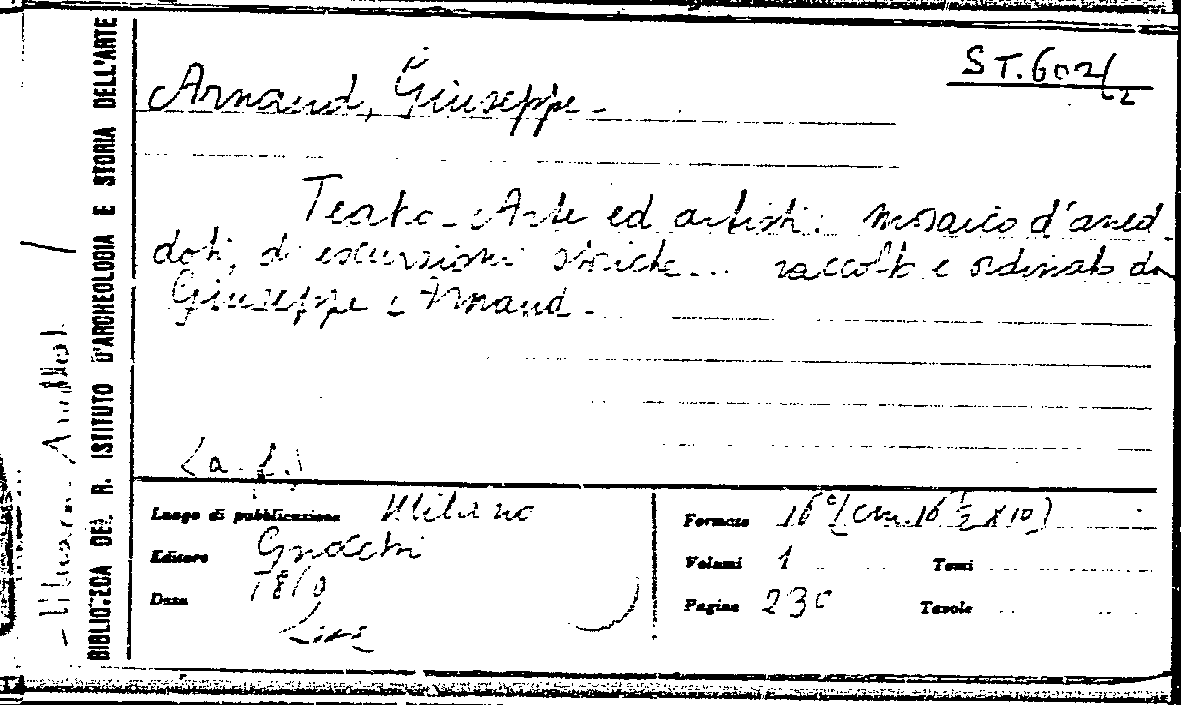 ST.602/2
Arnaud, Giuseppe -
Teatro - Arte ed artisti: mosaico d'aned-
doti, di escursioni storiche... raccolto e ordinato da
Giuseppe Arnaud.-
(a. f.)
Luogo di pubblicazione Milano
Editore Gnocchi
Data
Formato 16° (cm. 16 1/2 x 10)
Volumi 1 Tomi
Pagine 230 Tavole
BIBLIOTECA DEL R. ISTITUTO D'ARCHEOLOGIA E STORIA DELL'ARTE